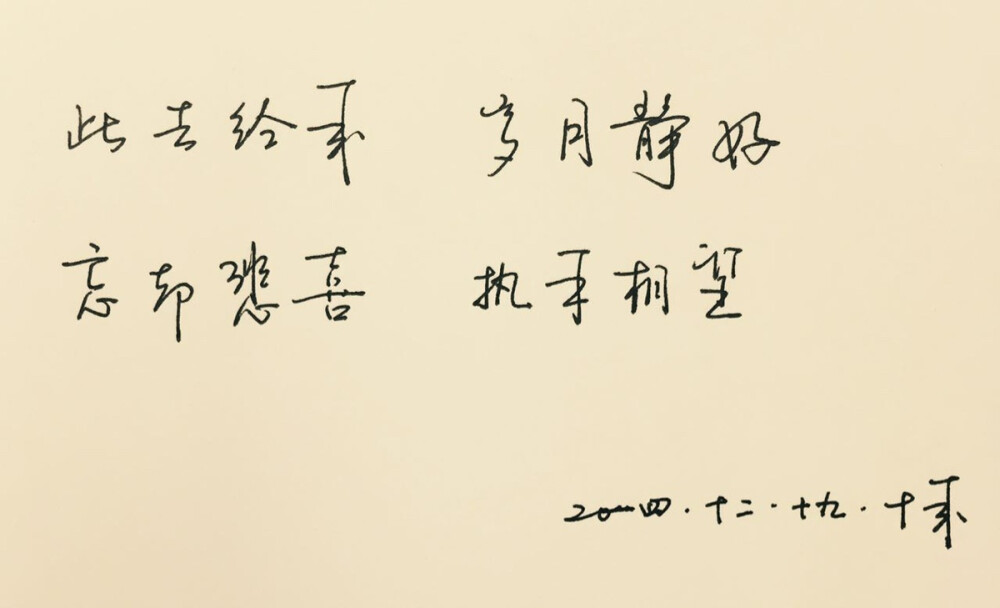 此去给年 岁月静好
忘却悲喜 执手相望
二〇一四·十二·十九·十年